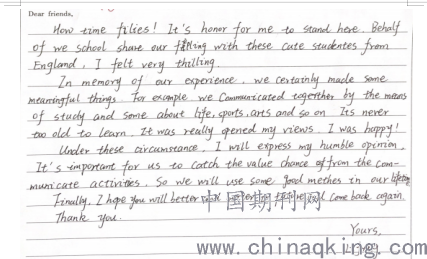 Dear friends,
How time filies! It's honor for me to stand here. Behalf
of we school share our filling with these cute studentes from
England. I felt very thilling.
In memory of our experience. we certainly made some
meaningful things. For example we communicated togerther by the means
of study and some about life, sports, arts and so on Its never
too old to learn. It was really opened my views. I was happy!
Under these circumstance. I will express my humble opinion.
It's important for us to catch the value chance of from the com-
municate activities. So we will use some good methes in our
Finally, I hope you will better come back again.
Thank you.
Yours,
Li Hua
中国期刊网
www.chinaqking.com